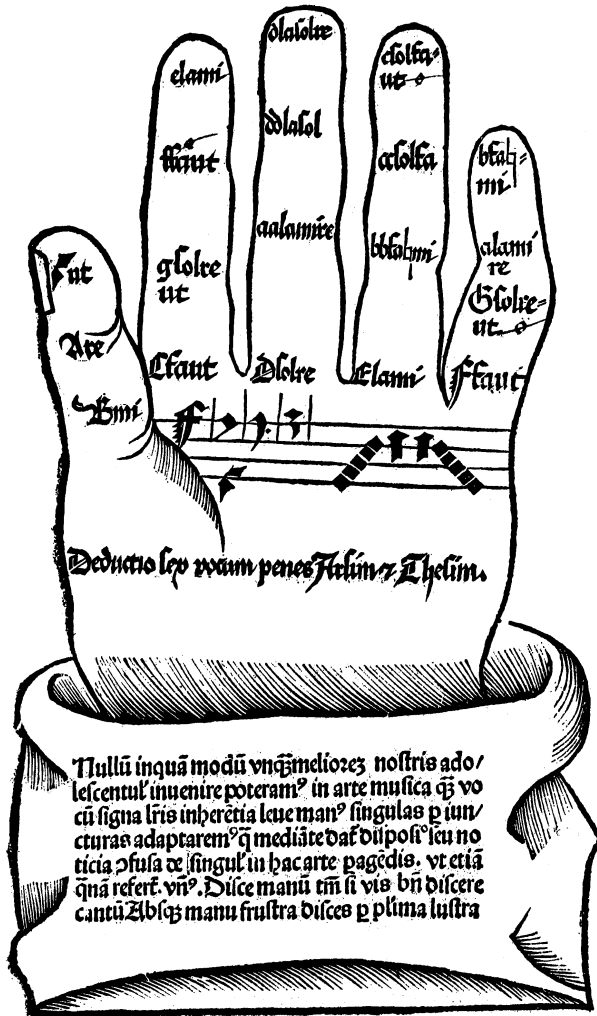 elami
dlasolre
csolfa-
ut
ffaut
ddlasol
ccsolfa
bfa♮=
mi
ut
gsolre
ut
aalamire
bbfa♮mi
alami
re
Are
Gsolre=
ut
Bmi
Cfaut
Dsolre
Elami
Ffaut
Deductio sex vocum penes Arsim ⁊ Thesim.
Nullū inquā modū vnqꝫ meliorez nostris ado/
lescentul' inuenire poteramꝰ in arte musica qꝫ vo
cū signa lr̄is inherētia leue manꝰ singulas ꝑ iun/
cturas adaptaremꝰ q̄ mediāte dat' disposiꝰ seu no
ticia ꝯfusa de singul' in hac arte pagēdis. vt etiā
q̄nā refert. vn̄ꝰ. Disce manū tm̄ si vis bn̄ discere
cantū Absqꝫ manu frustra disces ꝑ pl'ima lustra